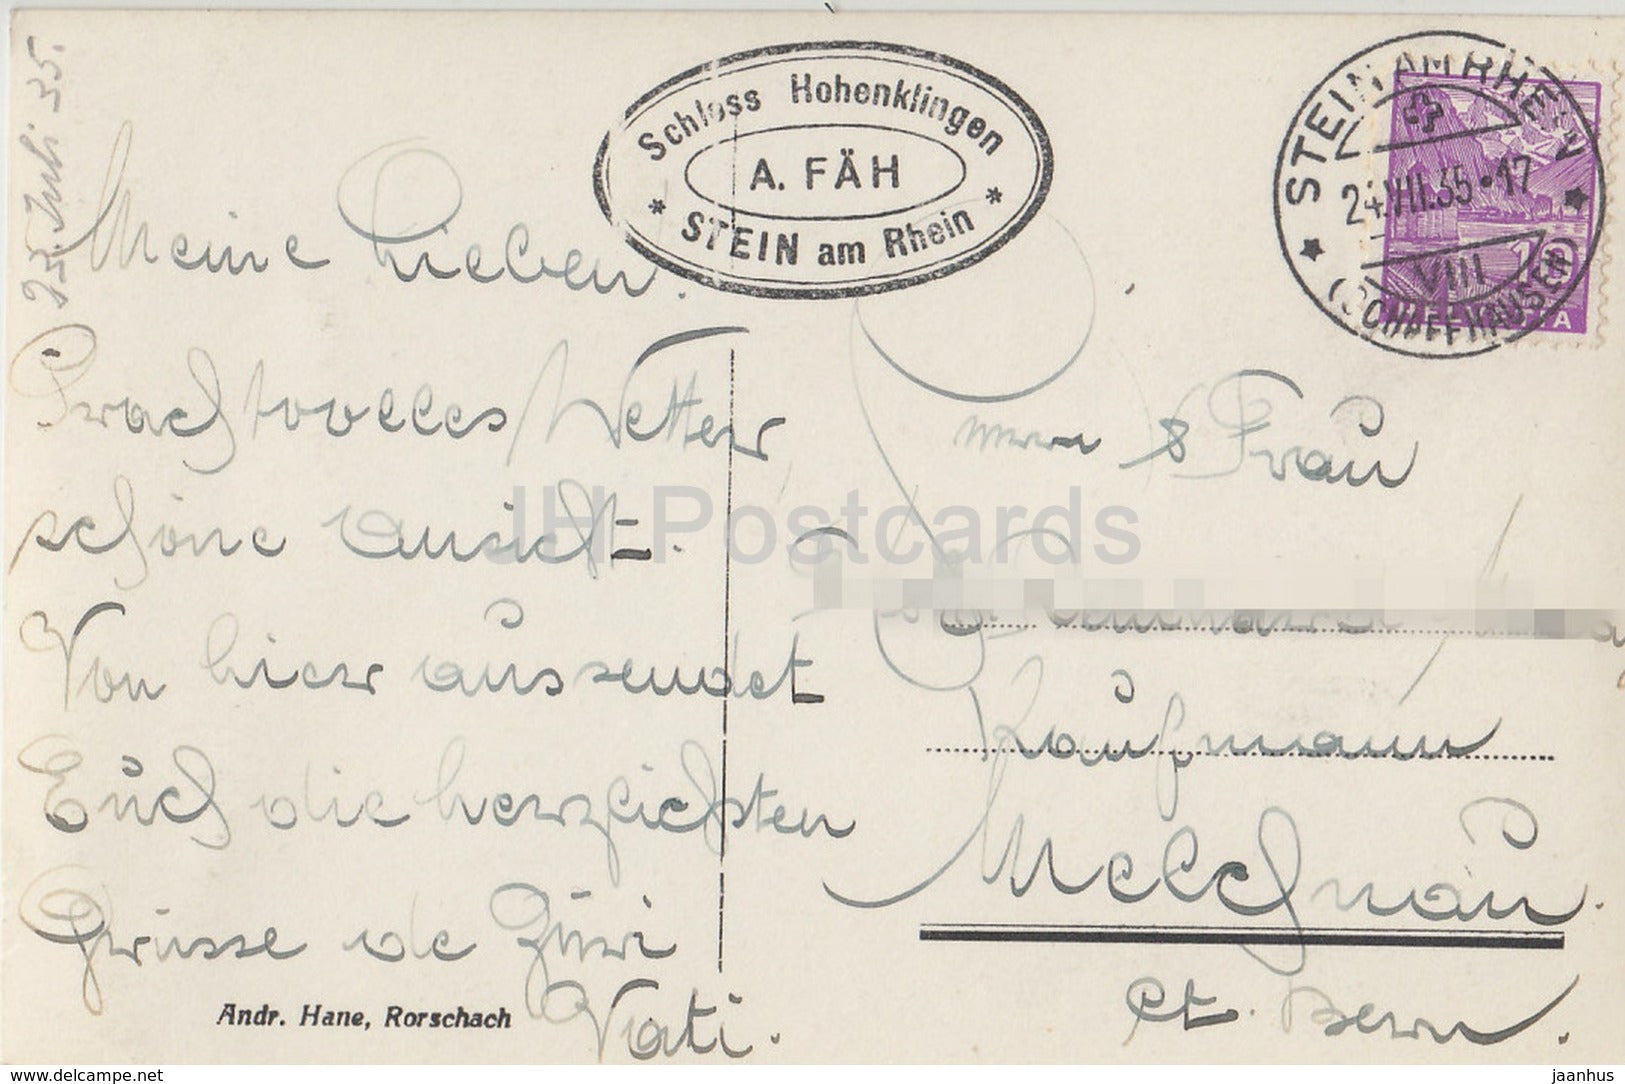 23. Juli 35.
Schloss Hohenklingen
A. FÄH
* STEIN am Rhein *
STEIN AM RHEIN
24.VII.35.17
VIII
(SCHAFFHAUSEN)
10
HELVETIA
Meine Lieben.
Prachtvolles Wetter
schöne Aussicht.
Von hier aussendet
Euch die herzlichsten
Grüsse de Züri
Vati.
Andr. Hane, Rorschach
& Frau
Kaufmann
Melchnau.
Ct. Bern.
JH Postcards
delcampe.net
jaanhus